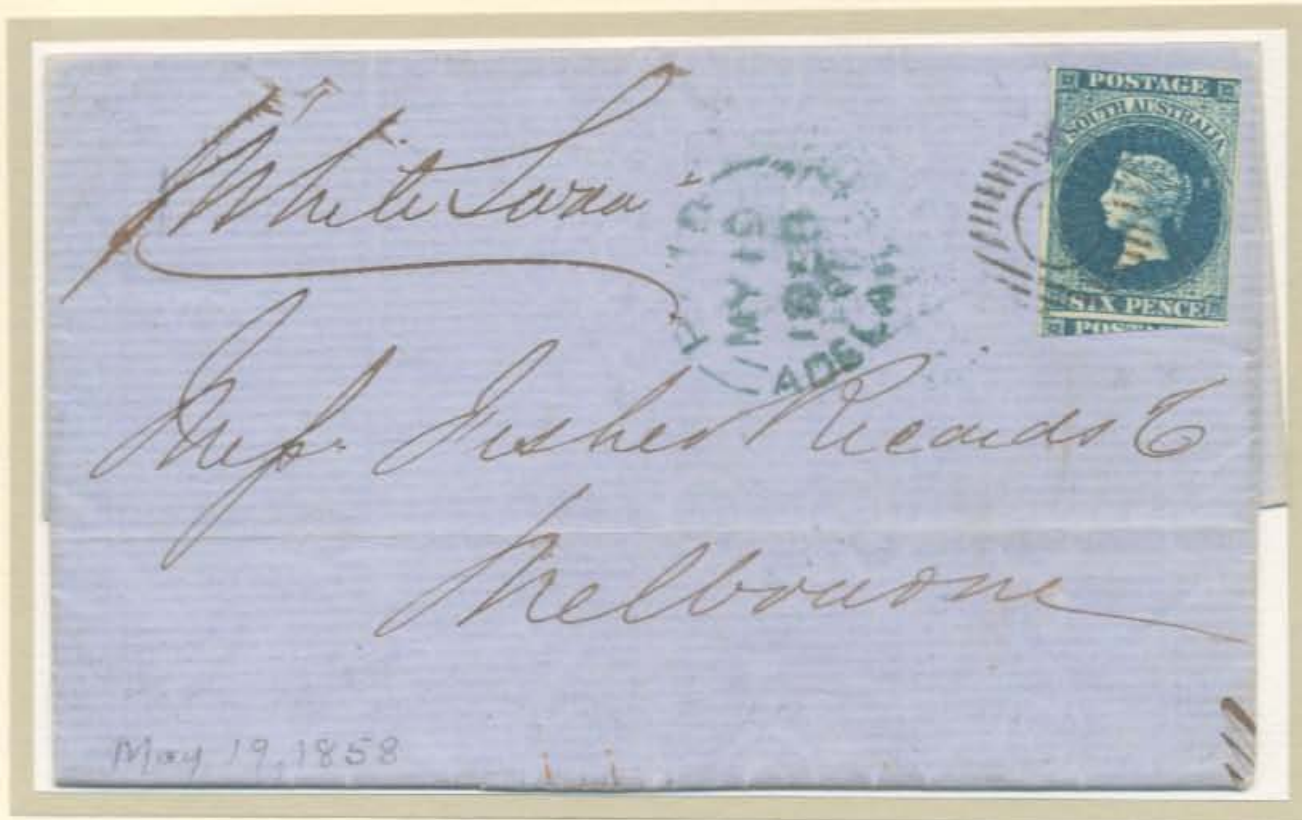 POSTAGE
SOUTH AUSTRALIA
SIX PENCE
POSTA
"White Swan"
MY 19
1858
ADELAI
Mess. Fisher Ricards Co
Melbourne
May 19, 1858